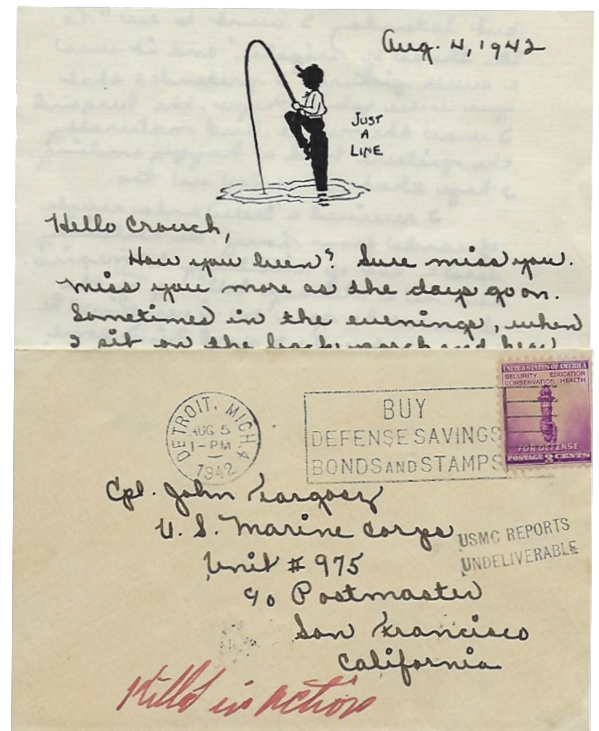 Aug. 4, 1942
JUST
A
LINE
Hello Crouch,
How you been? Sure miss you.
Miss you more as the days go on.
Sometimes in the evenings, when
I sit on the back porch and hear
DETROIT, MICH. 4
AUG 5
1-PM
1942
BUY
DEFENSE SAVINGS
BONDS AND STAMPS
UNITED STATES OF AMERICA
SECURITY EDUCATION
CONSERVATION HEALTH
FOR DEFENSE
POSTAGE 3 CENTS
Cpl. John
U. S. Marine Corps
Unit # 975
c/o Postmaster
San Francisco
California
USMC REPORTS
UNDELIVERABLE
Killed in action